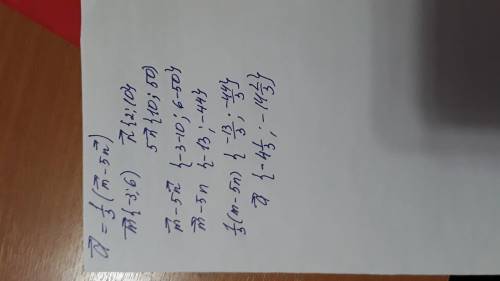 a⃗ = 1/3 (m⃗ - 5n⃗)
m⃗ {-3; 6} n⃗ {2; 10}
5n⃗ {10; 50}
m⃗ - 5n⃗ {-3-10; 6-50}
m⃗ - 5n {-13; -44}
1/3 (m - 5n) {-13/3; -44/3}
a⃗ {-4 1/3; -14 2/3}